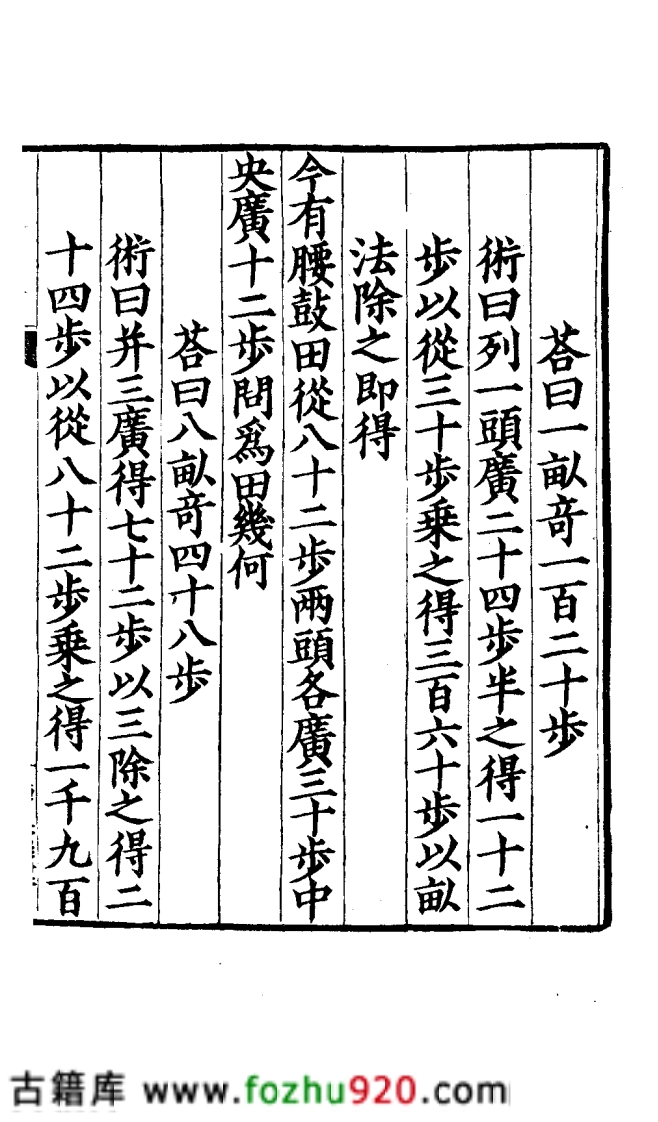 荅曰一畝奇一百二十歩
術曰列一頭廣二十四歩半之得一十二
歩以從三十歩乗之得三百六十歩以畝
法除之即得
今有腰鼓田從八十二歩兩頭各廣三十歩中
央廣十二歩問爲田幾何
荅曰八畝奇四十八歩
術曰并三廣得七十二歩以三除之得二
十四歩以從八十二歩乗之得一千九百
古籍库 www.fozhu920.com